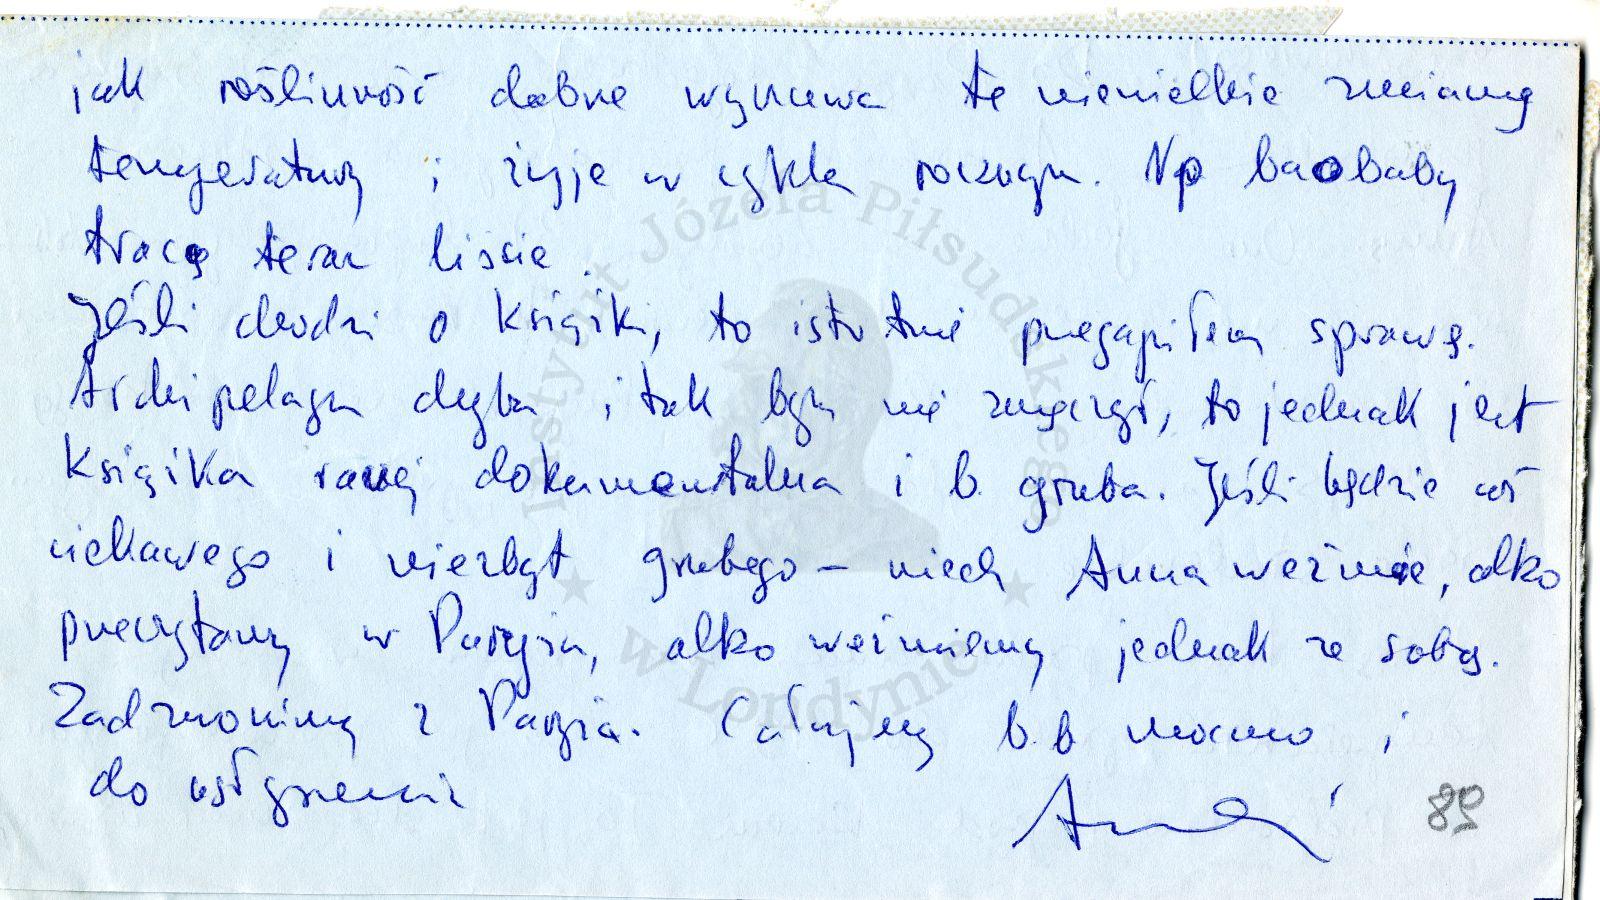 jak roślinność dobrze wyczuwa te niewielkie zmiany
temperatury i żyje w cyklu rocznym. Np baobaby
tracą teraz liście.
Jeśli chodzi o książki, to istotnie przegapiłem sprawę.
Archipelagu chyba i tak bym nie zmęczył, to jednak jest
książka raczej dokumentalna i b. gruba. Jeśli będzie coś
ciekawego i niezbyt grubego – niech Anna weźmie, albo
przeczytamy w Paryżu, albo weźmiemy jednak ze sobą.
Zadzwonimy z Paryża. Całujemy b.b mocno i
do usłyszenia
Instytut Józefa Piłsudskiego
w Londynie